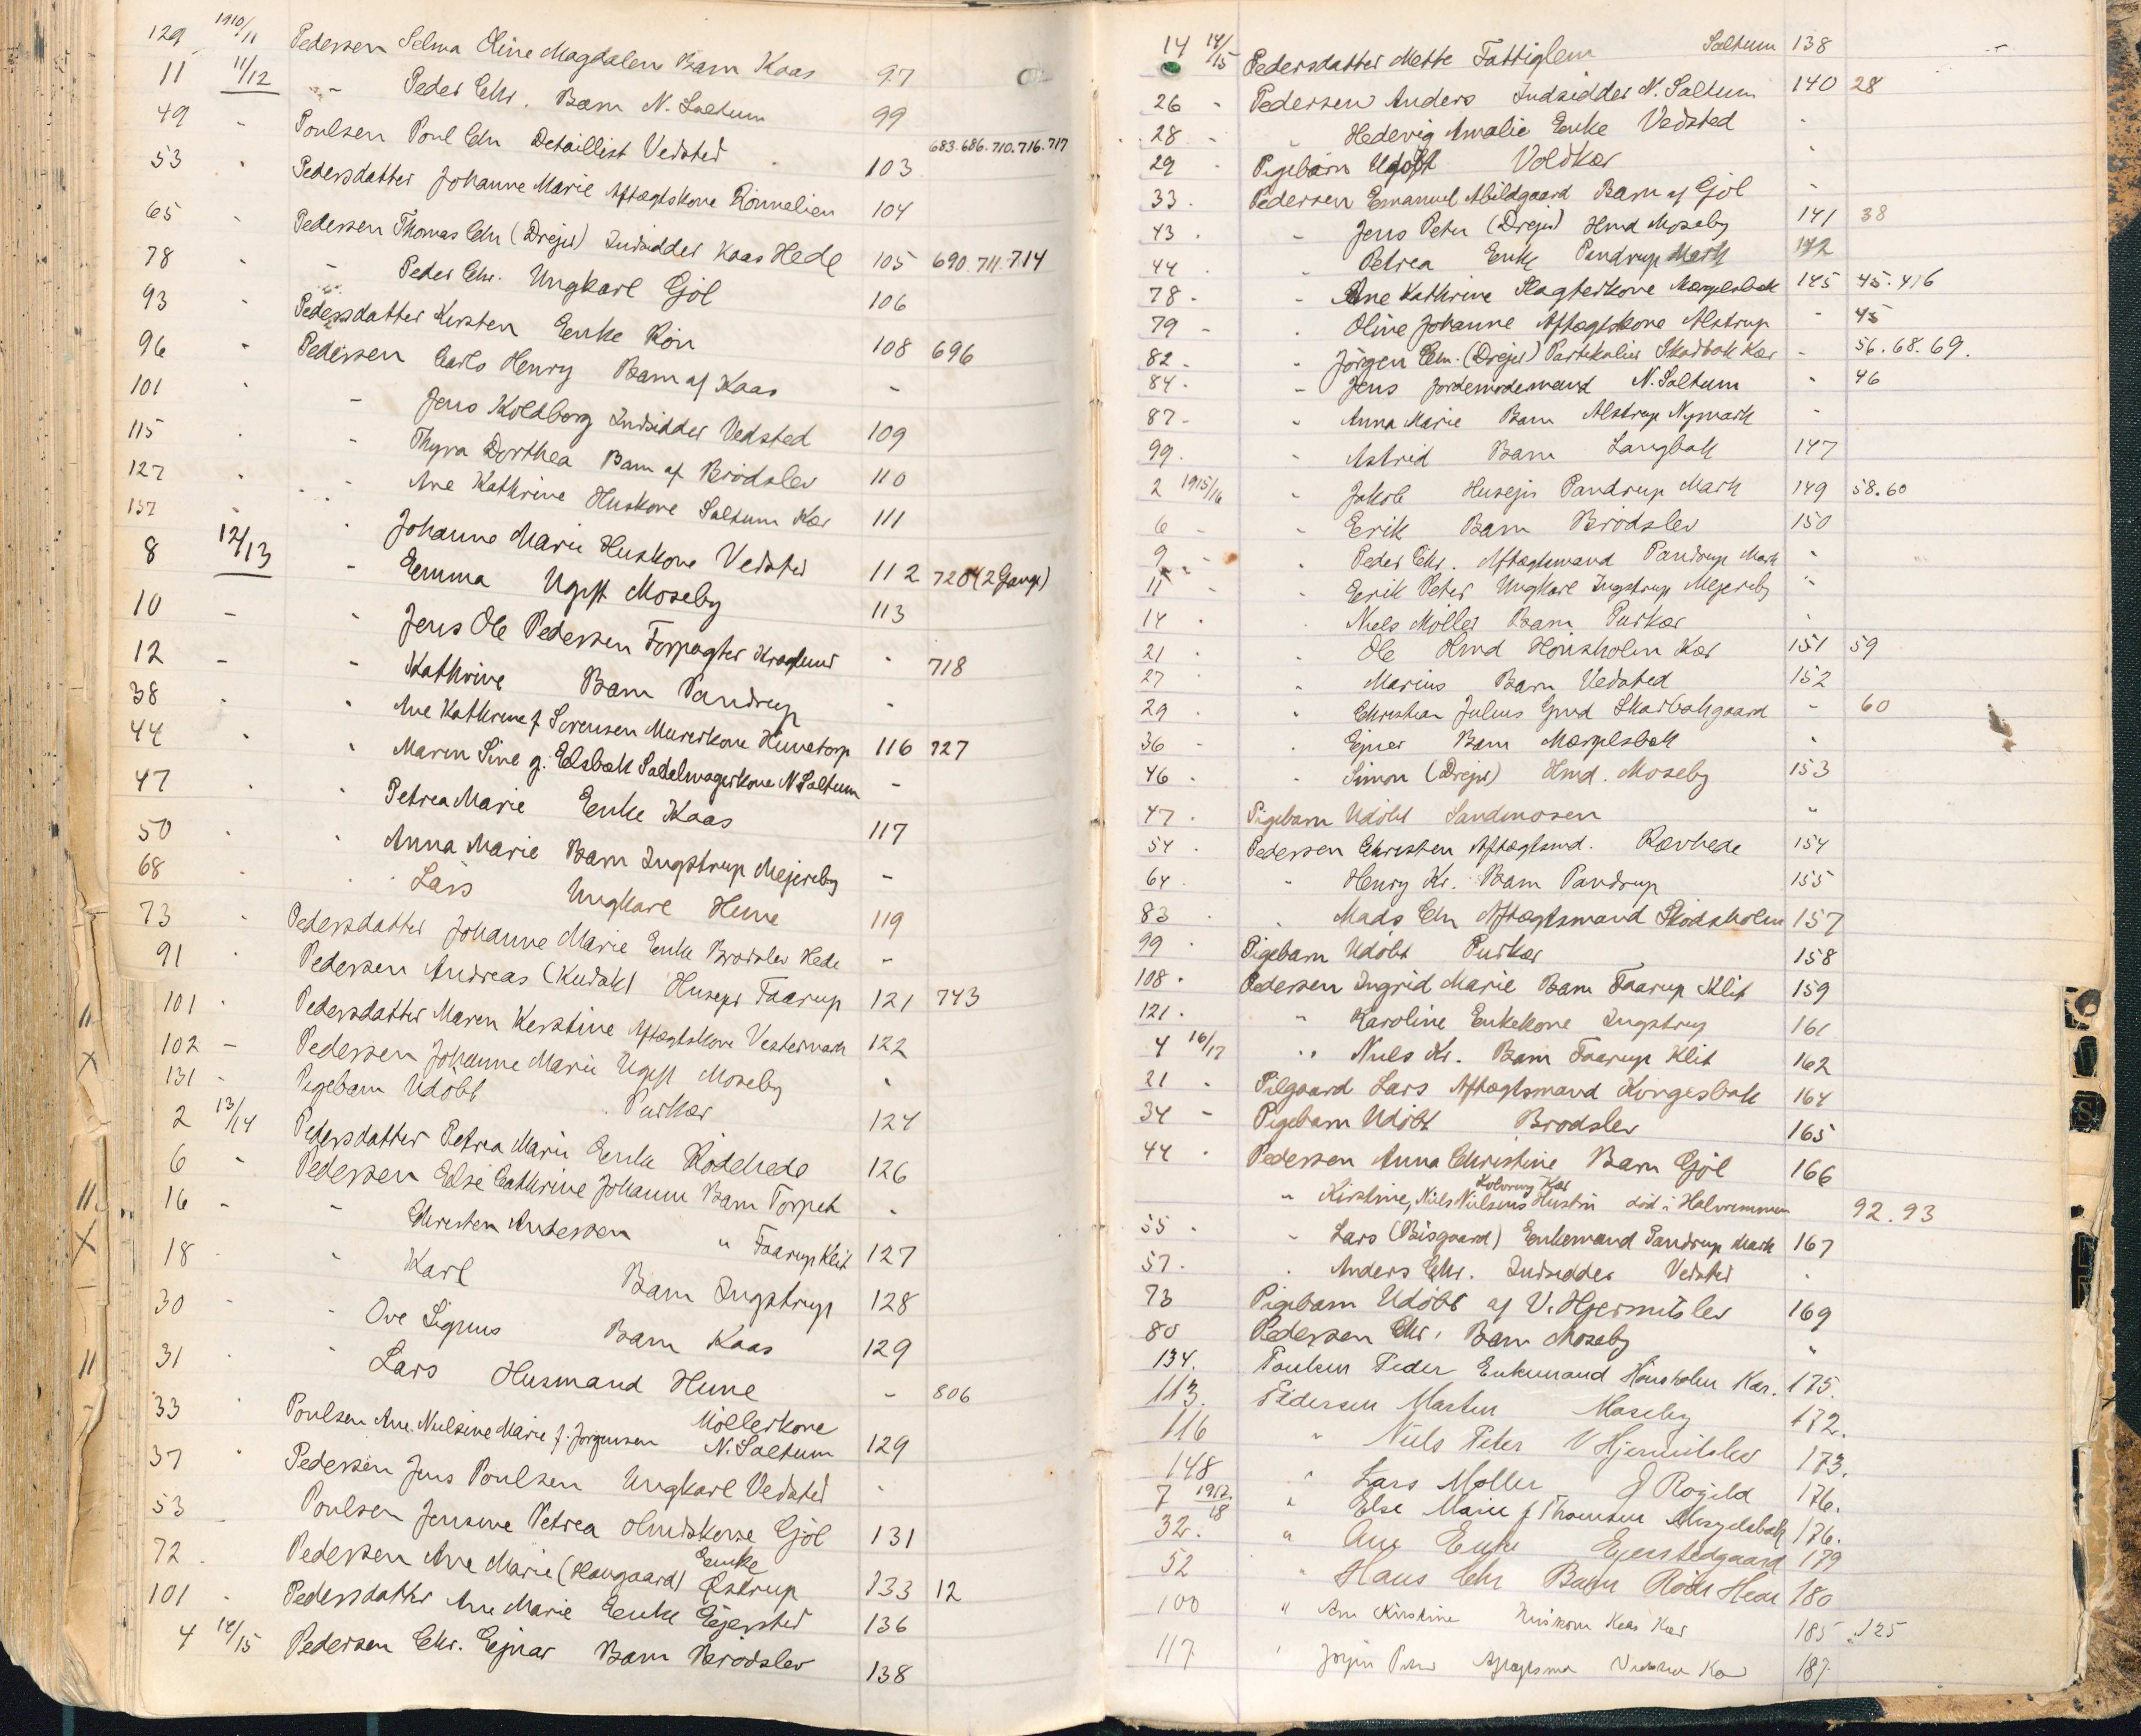 129 1910/11 Pedersen Selma Oline Magdalene Barn Kaas 97
11 11/12 " Peder Chr. Barn N. Saltum 99
49 - Poulsen Poul Chr Detaillist Vedsted 103 683.686.710.716.717
53 - Pedersdatter Johanne Marie Aftægtskone Rönnelien 104
65 - Pedersen Thomas Chr (Drejer) Indsidder Kaas Hede 105 690.711.714
78 - " Peder Chr. Ungkarl Gjöl 106
93 - Pedersdatter Kirsten Enke Rön 108 696
96 - Pedersen Carlo Henry Barn af Kaas -
101 - " Jens Koldborg Indsidder Vedsted 109
115 - " Thyra Dorthea Barn af Brödslev 110
127 - " Ane Kathrine Huskone Saltum Kær 111
137 - " Johanne Marie Huskone Vedsted 112 720 (2 Gange)
8 12/13 " Emma Ugift Moseby 113
10 - " Jens Ole Pedersen Forpagter Kraglund - 718
12 - " Kathrine Barn Pandrup -
38 - " Ane Kathrine f Sörensen Murerkone Hunetorp 116 727
44 - " Maren Sine g. Elsbæk Sadelmagerkone N Saltum -
47 - " Petrea Marie Enke Kaas 117
50 - " Anna Marie Barn Ingstrup Mejeriby -
68 - " Lars Ungkarl Hune 119
73 - Pedersdatter Johanne Marie Enke Brödslev Hede -
91 - Pedersen Andreas (Kudsk) Husejer Faarup 121 743
101 - Pedersdatter Maren Kerstine Aftægtskone Vestermark 122
102 - Pedersen Johanne Marie Ugift Moseby "
131 - Pigebarn Udöbt Purkær 124
2 13/14 Pedersdatter Petrea Marie Enke Rödehede 126
6 - Pedersen Else Cathrine Johanne Barn Torpet -
16 - " Christen Andersen " Faarup Klit 127
18 - " Karl Barn Ingstrup 128
30 - " Ove Barn Kaas 129
31 - " Lars Husmand Hune - 806
33 - Poulsen Ane Nielsine Marie f. Jörgensen Möllerkone N. Saltum 129
37 - Pedersen Jens Poulsen Ungkarl Vedsted -
53 - Poulsen Jensine Petrea Gjöl 131
72 - Pedersen Ane Marie (Haugaard) Enke Østrup 133 12
101 - Pedersdatter Ane Marie Enke Ejersted 136
4 14/15 Pedersen Chr. Ejnar Barn Brödslev 138
14 14/15 Pedersdatter Mette Fattiglem Saltum 138
26 - Pedersen Anders Indsidder N. Saltum 140 28
28 - " Hedevig Amalie Enke Vedsted -
29 - Pigebarn Udöbt Voldkær -
33 - Pedersen Emanuel Abildgaard Barn af Gjöl -
43 - " Jens Peter (Drejer) Hmd Moseby 141 38
44 - " Petrea Enke Pandrup Mark 142
78 - " Ane Kathrine Slagterkone Mærgelsbæk 145 45.46
79 - " Oline Johanne Aftægtskone Alstrup - 45
82 - " Jörgen Chr. (Drejer) Partikulier Skadbæk Kær - 56.68.69.
84 - " Jens Jordemodermand N. Saltum - 46
87 - " Anna Marie Barn Alstrup Nymark -
99 - " Astrid Barn Langbæk 147
2 1915/16 " Jakob Husejer Pandrup Mark 149 58.60
6 - " Erik Barn Brödslev 150
9 - " Peder Chr. Aftægtsmand Pandrup Mark "
11 - " Erik Peter Ungkarl Ingstrup Mejeriby "
14 - " Niels Möller Barn Purkær "
21 - " Ole Hmd Hönsholm Kær 151 59
27 - " Marius Barn Vedsted 152
29 - " Christian Julius Gmd Skadbækgaard - 60
36 - " Ejner Barn Mærgelsbæk "
46 - " Simon (Drejer) Hmd. Moseby 153
47 - Pigebarn Udöbt Sandmosen "
54 - Pedersen Christen Aftægtsmd. Rævhede 154
64 - " Henry Kr. Barn Pandrup 155
83 - " Mads Chr Aftægtsmand Rödsholm 157
99 - Pigebarn Udöbt Purkær 158
108 - Pedersen Ingrid Marie Barn Faarup Klit 159
121 - " Karoline Enkekone Ingstrup 161
4 16/17 " Niels Kr. Barn Faarup Klit 162
21 - Pilgaard Lars Aftægtsmand Kongesbæk 164
34 - Pigebarn Udöbt Brödslev 165
44 - Pedersen Anna Christine Barn Gjöl 166
" Kirstine, Niels Nielsens Hustru Kær död i Halvrimmen 92.93
55 - " Lars (Bisgaard) Enkemand Pandrup Mark 167
57 - " Anders Chr. Indsidder Vedsted "
73 Pigebarn Udöbt af V. Hjermitslev 169
80 Pedersen Chr. Barn Moseby "
134. Poulsen Peder Enkemand Hönsholm Kær. 175.
113. Pedersen Marten Moseby 172.
116 " Niels Peter V Hjermitslev 173.
148 " Lars Möller 176.
7 1917/18 " Else Marie f Thomsen Mergelsbæk 176.
32. " Ane Enke Ejerstedgaard 179
52 " Hans Chr Barn Röde Hede 180
100 " Ane Kirstine Huskone Kaas Kær 185 125
117 " Jörgen Peder Aftægtsma Kær 187